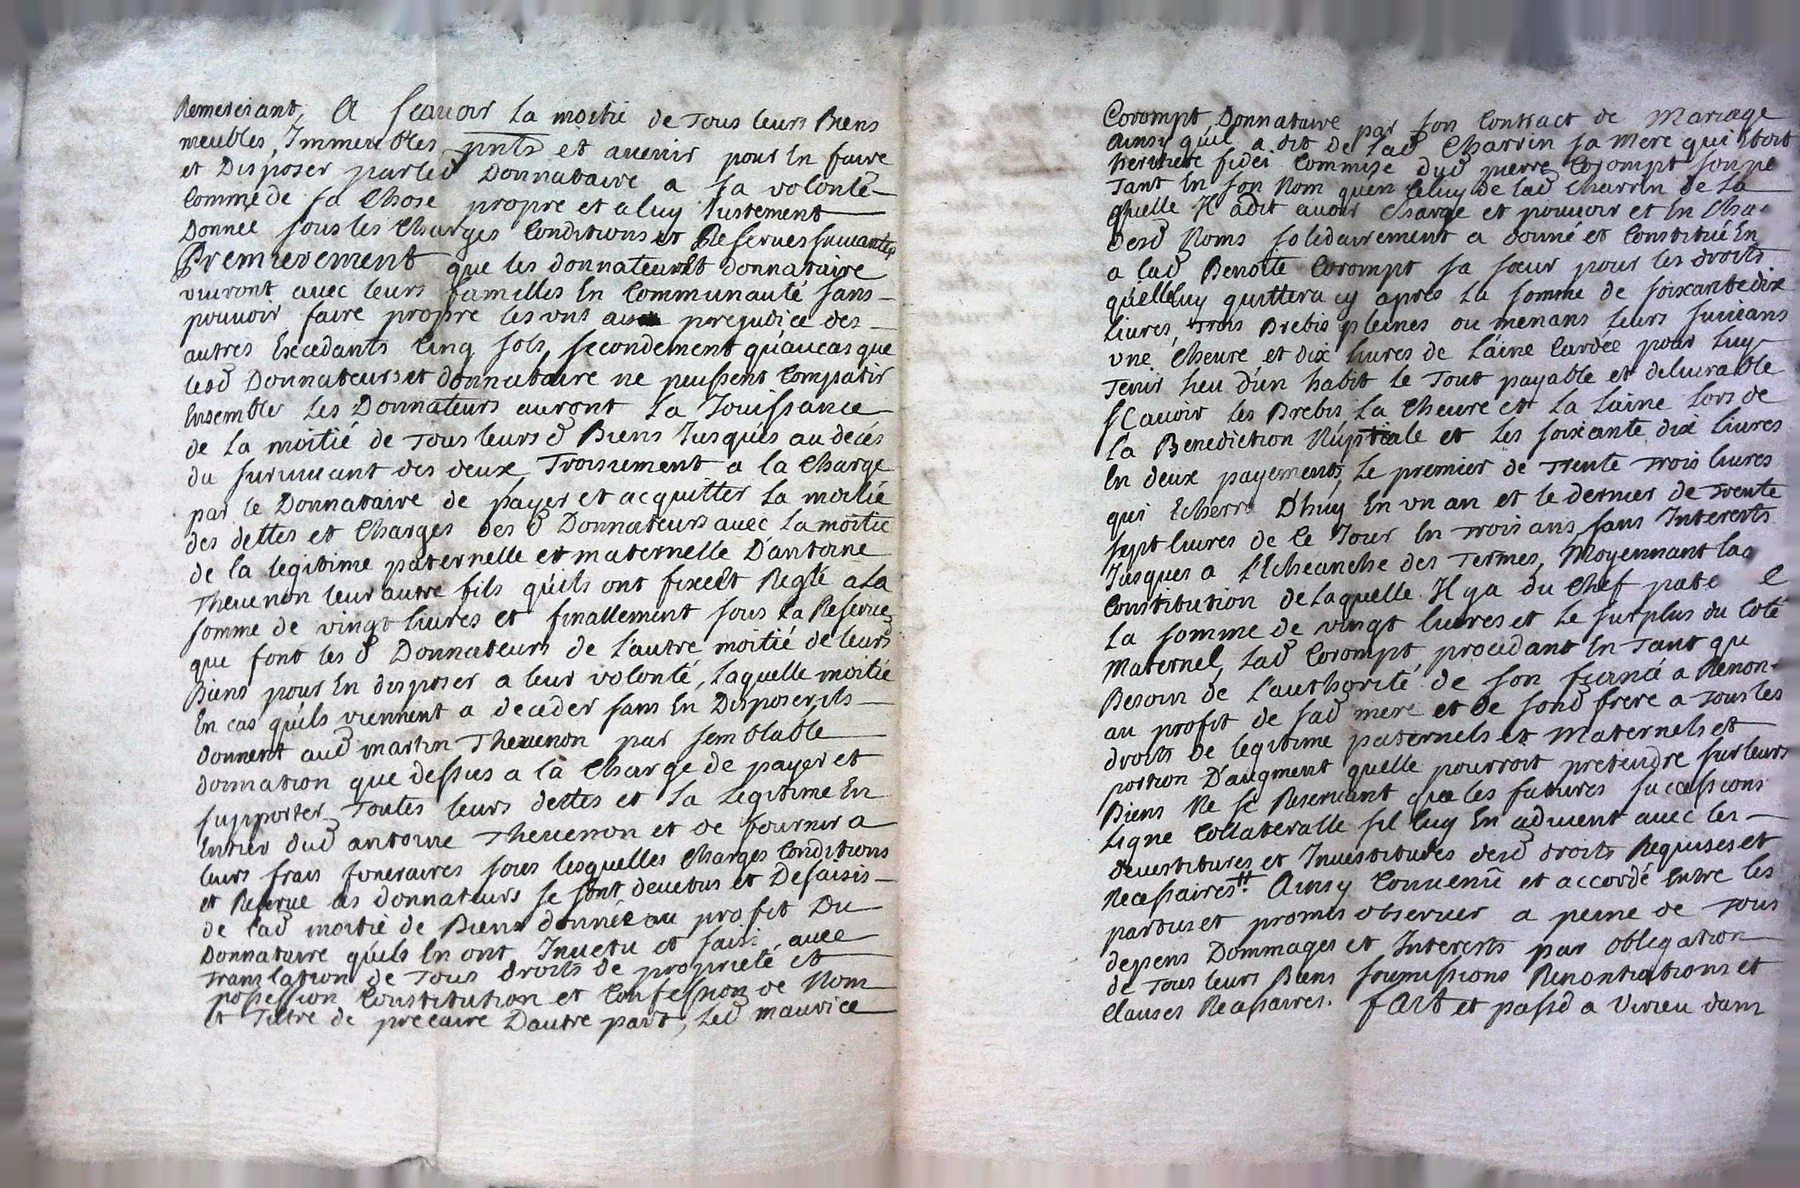 Remerciant, A Scauoir La moitié de Tous leurs Biens
meubles, Immeubles pnts et auenir pour En faire
et Disposer par led Donnataire a sa volonté
Comme de sa Chose propre et a luy Justement
Donnée sous les Charges Conditions et Reserves suiuantes
Premierement que les donnateurs et donnataire
viuront auec leurs familles En Communauté sans
pouuoir faire propre les uns au prejudice des
autres Excedants Cinq sols, secondement qu'aucas que
lesd Donnateurs et donnataire ne peussent Compatir
Ensemble Les Donnateurs auront La Jouissance
de La moitié de Tous leurs d Biens Jusques au decés
du suruiuant des deux Troisiement a la Charge
par le Donnataire de payer et acquitter La moitié
des dettes et Charges des d Donnateurs auec La moitié
de la legitime paternelle et maternelle D'antoine
Theuenon leur autre fils qu'ils ont fixé et Reglé a La
somme de vingt Liures et finallement sous La Reserue
que font les d Donnateurs de L'autre moitié de leurs
Biens pour En disposer a leur volonté, Laquelle moitié
En cas qu'ils viennent a deceder sans En Disposer, ils
donnent aud martin Theuenon par semblable
donnation que dessus a la Charge de payer et
supporter Toutes leurs dettes et La Legitime En
Entier dud antoine Theuenon et de fournir a
leurs frais funeraires sous lesquelles Charges Conditions
et Reserue les donnateurs se sont deuetus et Desaisis
de lad moitié de Biens donnée au profit Du
Donnataire qu'ils En ont Inuetu et saisi auec
Translation de Tous droits de proprieté et
possession Constitution et Confession de Nom
et Titre de precaire D'autre part, Led maurice
Corompt Donnataire par son Contract de Mariage
Ainsy qu'il a dit de Lad Charrin sa Mere qui Etoit
heritiere fidei Commise dud pierre Corompt son pe
Tant En son Nom qu'en Celuy de lad Charrin de La
quelle Il a dit auoir Charge et pouuoir et En Cha
desd Noms solidairement a donné et Constitué En
a lad Benoite Corompt sa soeur pour les droits
qu'elle luy quittera cy apres La somme de soixante dix
Liures, Trois Brebis pleines ou menans leurs suiuans
une Cheure et dix liures de Laine Cardée pour Luy
Tenir lieu d'un habit le Tout payable et deliurable
sçauoir les Brebis La Cheure et La Laine Lors de
La Benediction Nuptiale et les soixante dix Liures
En deux payements, Le premier de Trente Trois Liures
qui Echerra D'huy En un an et le dernier de Trente
sept Liures de Ce Jour En Trois ans sans Interests
Jusques a L'Echeanche des Termes, Moyennant lad
Constitution de Laquelle Il y a du Chef pate
La somme de vingt Liures et Le surplus du Coté
Maternel, Lad Corompt procedant En Tant que
Besoin de L'authorité de son fiancé a Renon
au profit de sad mere et de sond frere a Tous les
droits de legitime paternels et Maternels et
portion D'augment quelle pourroit pretendre sur leurs
Biens Ne se Reseruant que les futures successions
Ligne Collateralle sil luy En aduient auec les
deuestitures et Inuestitudes desd droits Requises et
Necessaires Ainsy Conuenû et accordé Entre les
parties et promis obseruer a peine de Tous
depens Dommages et Interests par obligation
de Tous leurs Biens soumissions Renontiations et
Clauses Necessaires. fAit et passé a Virieu dans